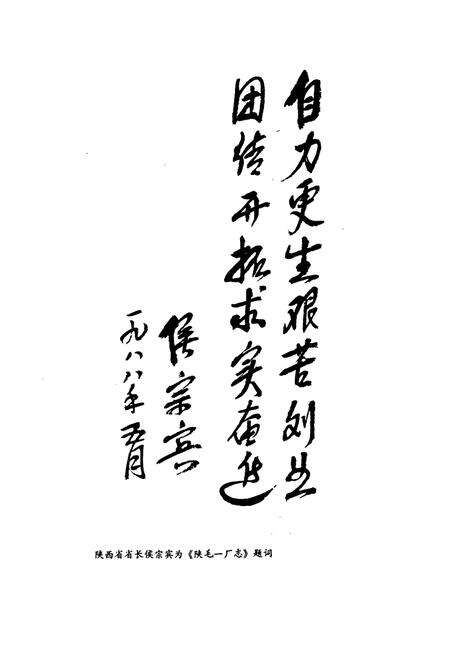 自力更生艰苦创业
团结开拓求实奋进
侯宗宾
一九八八年五月
陕西省省长侯宗宾为《陕毛一厂志》题词